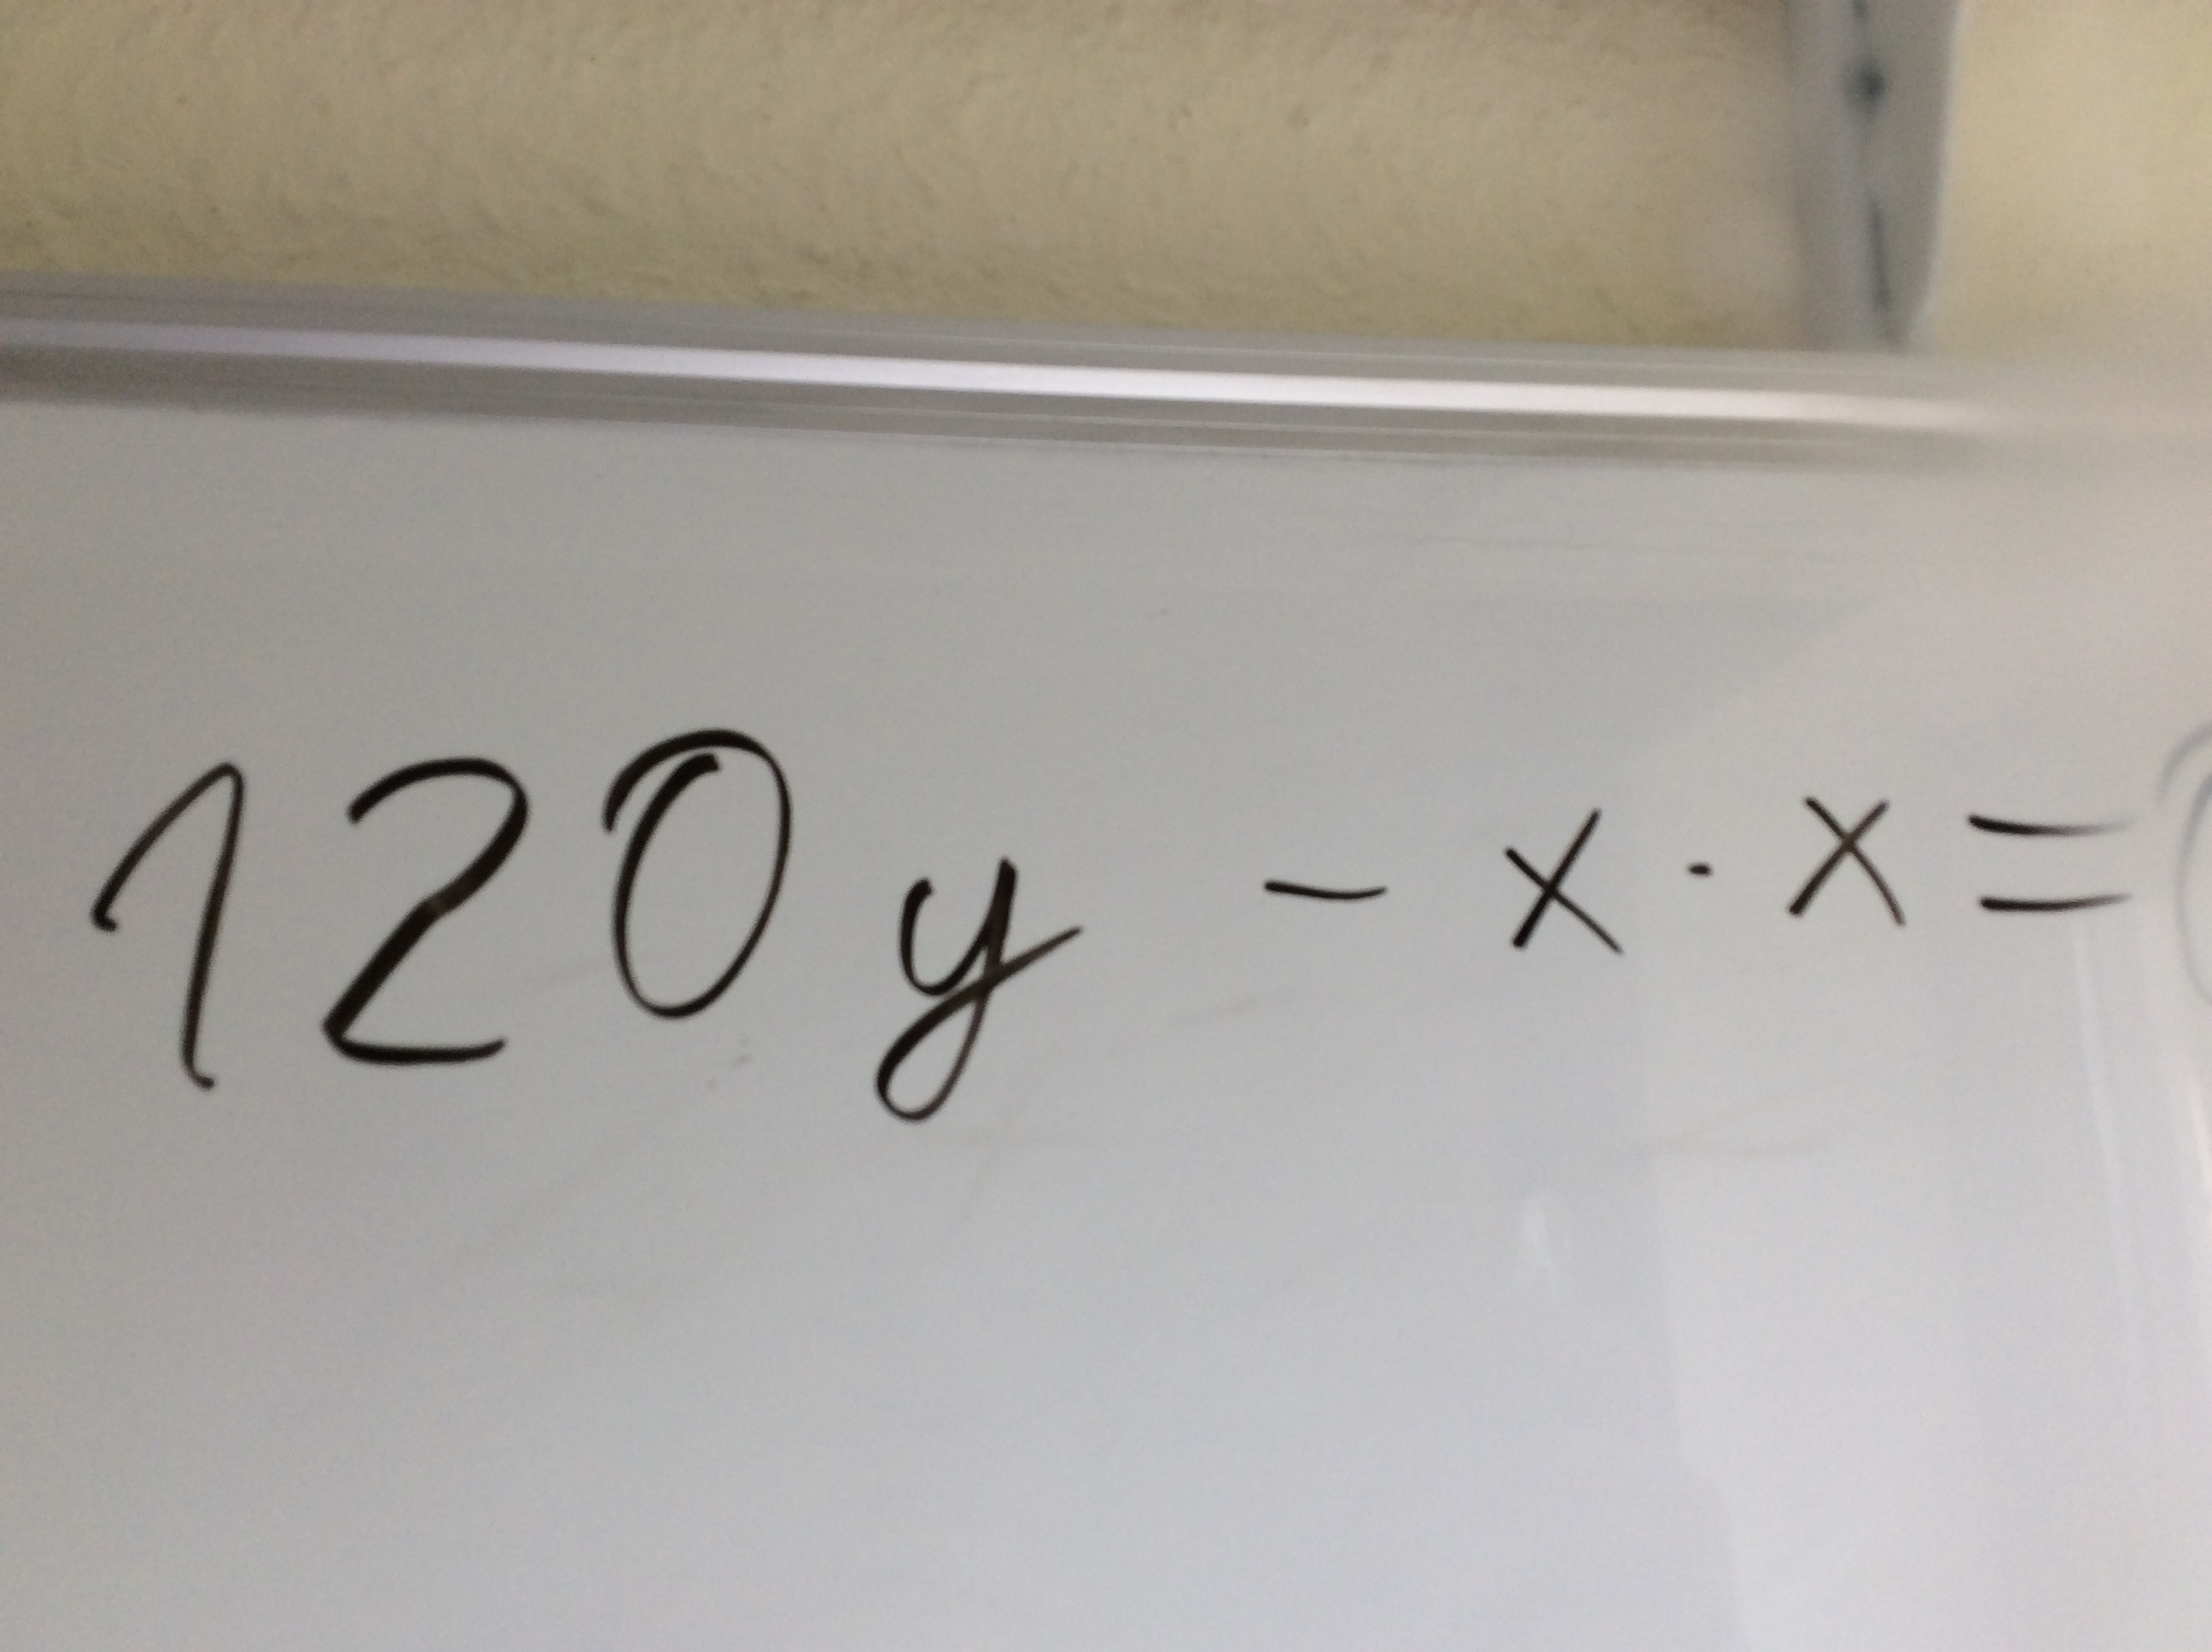 120y - x · x =